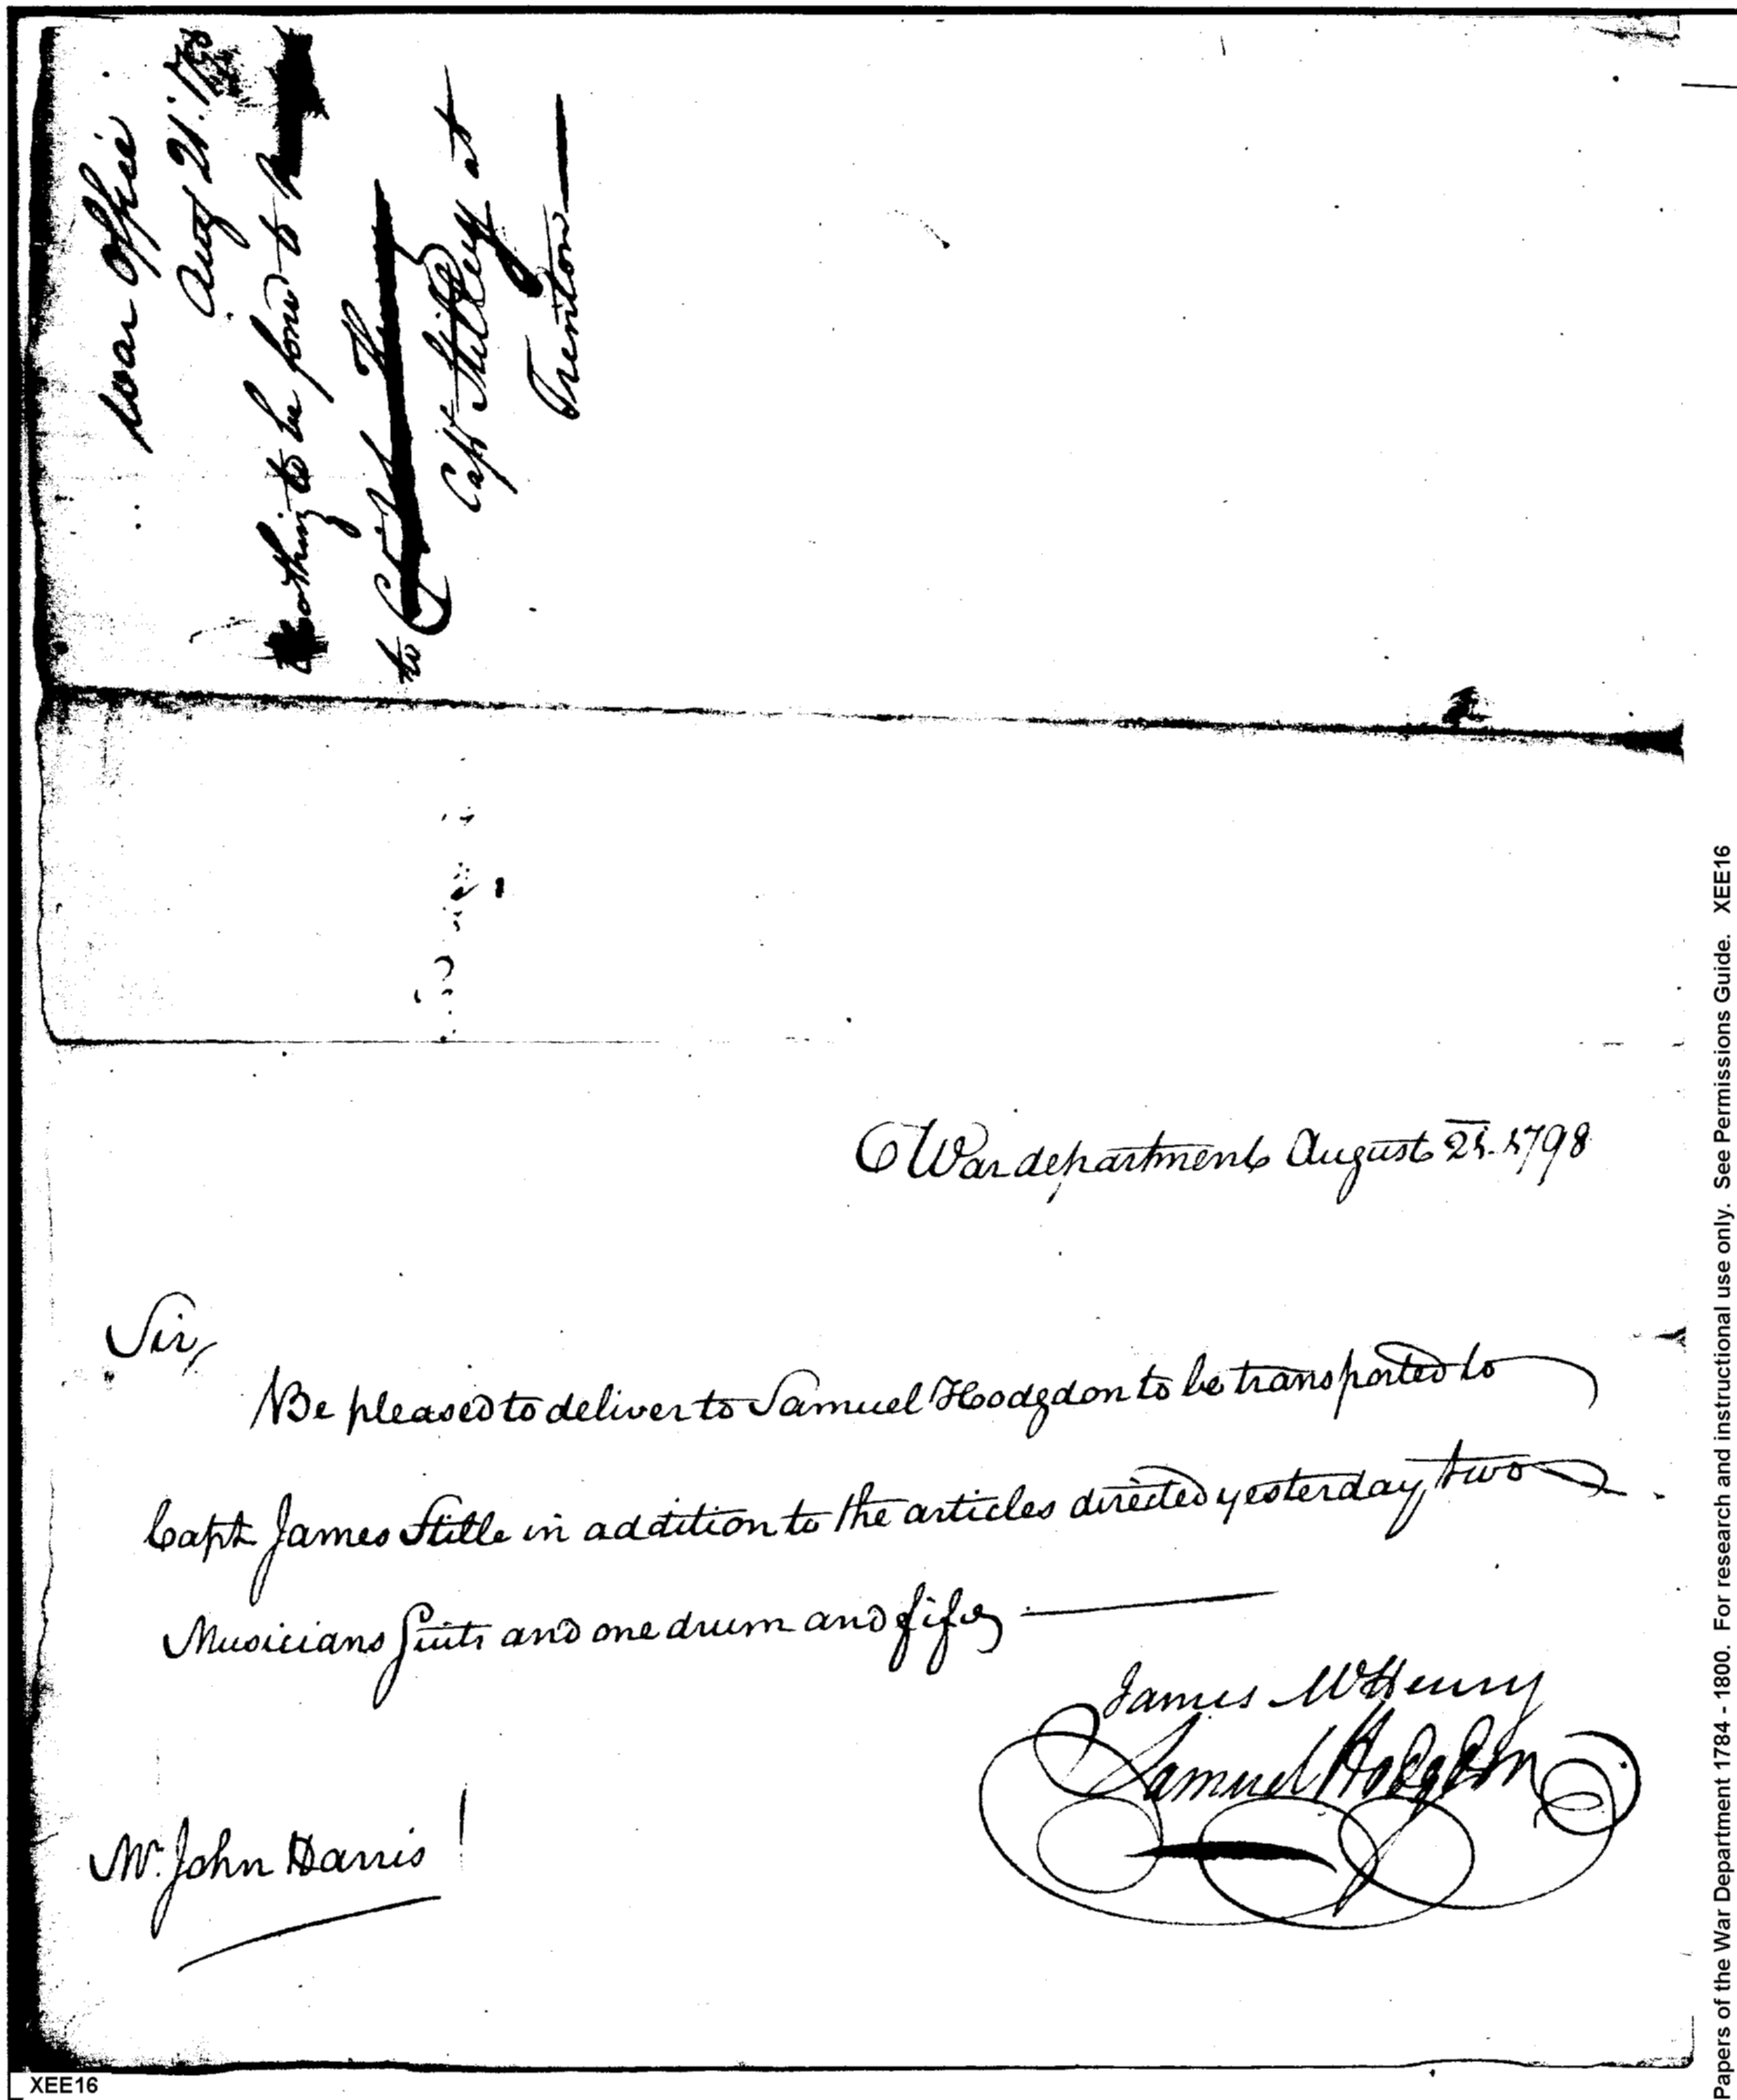 War Office
Augt 21. 1798
Clothing to be forw'd to
to
Capt Stille at
Trenton
War department August 21. 1798
Sir,
Be pleased to deliver to Samuel Hodgdon to be transported to
Capt. James Stille in addition to the articles directed yesterday, two
Musicians Suits and one drum and fife
James McHenry
Samuel Hodgdon
Mr. John Harris
XEE16
Papers of the War Department 1784 - 1800. For research and instructional use only. See Permissions Guide. XEE16